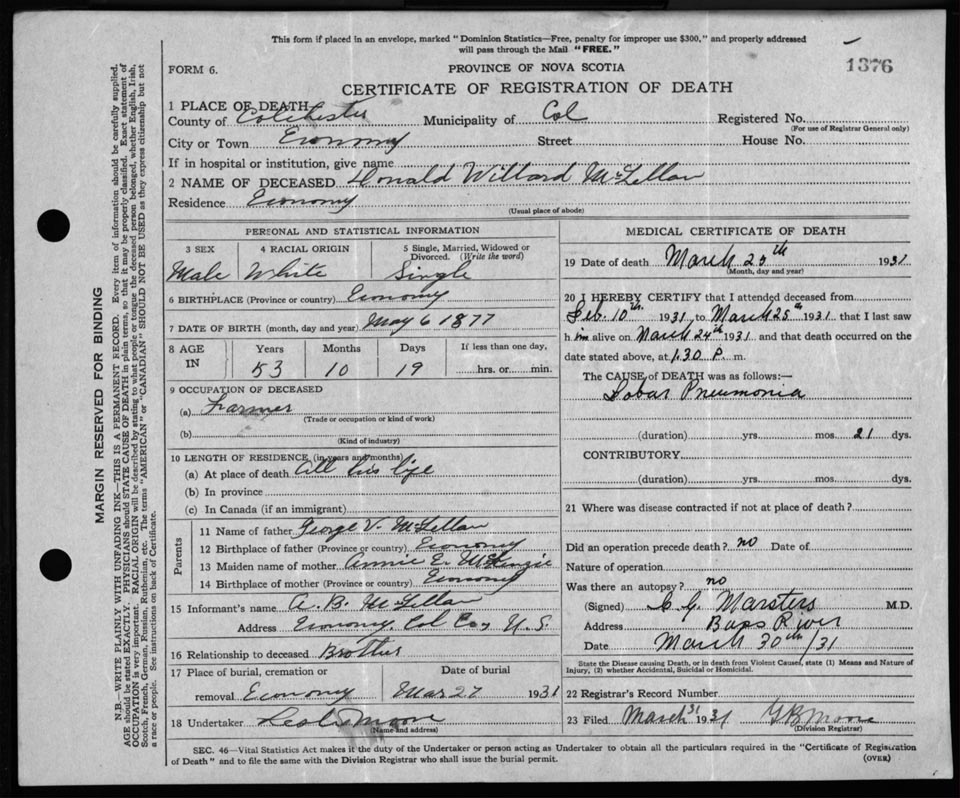 This form if placed in an envelope, marked "Dominion Statistics—Free, penalty for improper use $300," and properly addressed
will pass through the Mail "FREE."
FORM 6.
PROVINCE OF NOVA SCOTIA
1376
CERTIFICATE OF REGISTRATION OF DEATH
1 PLACE OF DEATH
County of Colchester Municipality of Col Registered No.
(For use of Registrar General only)
City or Town Economy Street House No.
If in hospital or institution, give name
2 NAME OF DECEASED Donald Willard McLellan
Residence Economy
(Usual place of abode)
PERSONAL AND STATISTICAL INFORMATION
3 SEX 4 RACIAL ORIGIN 5 Single, Married, Widowed or
Divorced. (Write the word)
Male White Single
6 BIRTHPLACE (Province or country) Economy
7 DATE OF BIRTH (month, day and year) May 6 1877
8 AGE Years Months Days If less than one day,
IN 53 10 19 hrs. or min.
9 OCCUPATION OF DECEASED
(a) Farmer
(Trade or occupation or kind of work)
(b)
(Kind of industry)
10 LENGTH OF RESIDENCE (in years and months)
(a) At place of death all his life
(b) In province
(c) In Canada (if an immigrant)
Parents
11 Name of father George V. McLellan
12 Birthplace of father (Province or country) Economy
13 Maiden name of mother Annie E. McKenzie
14 Birthplace of mother (Province or country) Economy
15 Informant's name A. B. McLellan
Address Economy, Col Co, N.S.
16 Relationship to deceased Brother
17 Place of burial, cremation or Date of burial
removal Economy Mar 27 1931
18 Undertaker Moore
(Name and address)
MEDICAL CERTIFICATE OF DEATH
19 Date of death March 25th 1931
(Month, day and year)
20 I HEREBY CERTIFY that I attended deceased from
Feb. 10th 1931, to March 25th 1931 that I last saw
h im alive on March 24th 1931 and that death occurred on the
date stated above, at 1.30 P. m.
The CAUSE of DEATH was as follows:—
Lobar Pneumonia
(duration) yrs. mos. 21 dys.
CONTRIBUTORY
(duration) yrs. mos. dys.
21 Where was disease contracted if not at place of death?
Did an operation precede death? no Date of
Nature of operation
Was there an autopsy? no
(Signed) C G. Marsters M.D.
Address Bass River
Date March 30th/31
State the Disease causing Death, or in death from Violent Causes, state (1) Means and Nature of
Injury, (2) whether Accidental, Suicidal or Homicidal.
22 Registrar's Record Number
23 Filed March 31 1931 G B Moore
(Division Registrar)
SEC. 46—Vital Statistics Act makes it the duty of the Undertaker or person acting as Undertaker to obtain all the particulars required in the "Certificate of Registration
of Death" and to file the same with the Division Registrar who shall issue the burial permit.
(OVER)
MARGIN RESERVED FOR BINDING
N.B.—WRITE PLAINLY WITH UNFADING INK—THIS IS A PERMANENT RECORD. Every item of information should be carefully supplied.
AGE should be stated EXACTLY. PHYSICIANS should STATE CAUSE OF DEATH in plain terms, so that it may be properly classified. Exact statement of
OCCUPATION is very important. RACIAL ORIGIN will be described by stating to what people or tongue the deceased person belonged, whether English, Irish,
Scotch, French, German, Russian, Ruthenian, etc. The terms "AMERICAN" or "CANADIAN" SHOULD NOT BE USED as they express citizenship but not
a race or people. See instructions on back of Certificate.